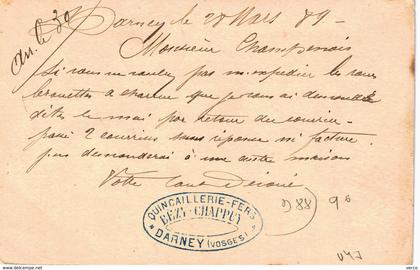 Darney le 28 Mars 89 -
an. le 30
Monsieur Champenois
Si vous ne voulez pas m'expédier les
brouettes à charrue que je vous ai demandé
dites le moi par retour du courrier
2 courriers sans réponse ni facture
je les demanderai à une autre maison
Votre tout dévoué
QUINCAILLERIE-FERS
BEZY-CHAPPUY
DARNEY (VOSGES)
D88
9 6